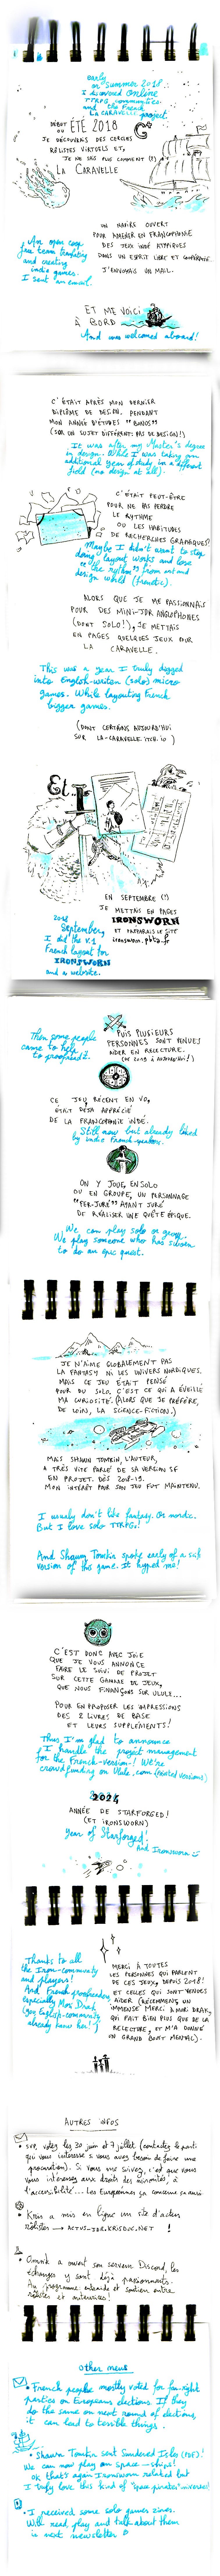 early
in Summer 2018
I discovered online
TTRPG communities
and the French
LA CARAVELLE project
DÉBUT ÉTÉ 2018
OU
JE DÉCOUVRAIS DES CERCLES
RÔLISTES VIRTUELS ET,
JE NE SAIS PLUS COMMENT (?)
LA CARAVELLE
UN NAVIRE OUVERT
POUR AMENER EN FRANCOPHONIE
DES JEUX INDÉ ATYPIQUES
DANS UN ESPRIT LIBRE ET
J'ENVOYAIS UN MAIL.
An open cage
free team translating
and creating
indie games.
I sent an email.
ET ME VOICI
À BORD
And was welcomed aboard!
C'ÉTAIT APRÈS MON DERNIER
DIPLÔME DE DESIGN, PENDANT
MON ANNÉE D'ÉTUDES "BONUS"
(SUR UN SUJET DIFFÉRENT, PAS DE DESIGN!)
It was after my Master's degree
in design. While I was taking an
additional year of study in a different
field (no design at all).
C'ÉTAIT PEUT-ÊTRE
POUR NE PAS PERDRE
LE RYTHME
OU LES HABITUDES
DE RECHERCHES GRAPHIQUES?
Maybe I didn't want to stop
doing layout works and lose
"the rythm" from art and
design world (frenetic).
ALORS QUE JE ME PASSIONNAIS
POUR DES MINI-JDR ANGLOPHONES
(DONT SOLO!), JE METTAIS
EN PAGES QUELQUES JEUX POUR
LA CARAVELLE.
This was a year I truly digged
into English-written (solo) micro
games. While layouting French
bigger games.
(DONT CERTAINS AUJOURD'HUI
SUR LA-CARAVELLE.ITCH.IO)
Et...
EN SEPTEMBRE (?)
JE METTAIS EN PAGES
IRONSWORN
ET PRÉPARAIS LE SITE
ironsworn.pbta.fr
2018
September,
I did the V.1
French layout for
IRONSWORN
and a website.
Then some people
came to help
to proofread it.
PUIS PLUSIEURS
PERSONNES SONT VENUES
AIDER EN RELECTURE.
(DE 2019 À AUJOURD'HUI!)
CE JEU, RÉCENT EN VO,
ÉTAIT DÉJÀ APPRÉCIÉ
DE LA FRANCOPHONIE INDÉ.
Still new but already liked
by indie French-speakers.
ON Y JOUE, EN SOLO
OU EN GROUPE, UN PERSONNAGE
"FER-JURÉ" AYANT JURÉ
DE RÉALISER UNE QUÊTE ÉPIQUE.
We can play solo or group.
We play someone who has sworn
to do an epic quest.
JE N'AIME GLOBALEMENT PAS
LA FANTASY NI LES UNIVERS NORDIQUES.
MAIS CE JEU ÉTAIT PENSÉ
POUR DU SOLO. C'EST CE QUI A ÉVEILLÉ
MA CURIOSITÉ. (ALORS QUE JE PRÉFÈRE,
DE LOIN, LA SCIENCE-FICTION.)
MAIS SHAWN TOMKIN, L'AUTEUR,
A TRÈS VITE PARLÉ DE SA VERSION SF
EN PROJET. DÈS 2018-19.
MON INTÉRÊT POUR SON JEU FUT MAINTENU.
I usually don't like fantasy. Or nordic.
But I love solo TTRPGs!
And Shawn Tomkin spoke early of a scifi
version of this game. It hyped me!
C'EST DONC AVEC JOIE
QUE JE VOUS ANNONCE
FAIRE LE SUIVI DE PROJET
SUR CETTE GAMME DE JEUX,
QUE NOUS FINANÇONS SUR ULULE...
POUR EN PROPOSER LES IMPRESSIONS
DES 2 LIVRES DE BASE
ET LEURS SUPPLÉMENTS!
Thus I'm glad to announce
I handle the project management
for the French-version! We're
crowdfunding on Ulule.com (printed versions)
2024
ANNÉE DE STARFORGED!
(ET IRONSWORN)
Year of Starforged!
And Ironsworn
Thanks to all
the Iron-community
and players!
And French proofreaders,
especially Mori Drak
(you English-community
already knows her!)
MERCI À TOUTES
LES PERSONNES QUI PARLENT
DE CES JEUX, DEPUIS 2018!
ET CELLES QUI SONT VENUES
AIDER (RÉCEMMENT, UN
IMMENSE MERCI À MORI DRAK,
QUI FAIT BIEN PLUS QUE DE LA
RELECTURE, ET M'A DONNÉ
UN GRAND BOOST MENTAL).
AUTRES INFOS
• SVP, votez les 30 juin et 7 juillet (contactez le parti
qui vous intéresse si vous avez besoin de faire une
procuration). Si vous me suivez, c'est que vous
vous intéressez aux droits des minorités, à
l'accessibilité... Les Européennes ça concerne ça aussi
• Kris a mis en ligne un site d'actus
rôlistes → ACTUS-JDR.KRISDUG.NET !
• Omnik a ouvert son serveur Discord, les
échanges y sont déjà passionnants.
Au programme: entraide et soutien entre
rôlistes et auteurices!
Other news
• French people mostly voted for far-right
parties on Europeans elections. If they
do the same on next round of elections,
it can lead to terrible things.
• Shawn Tomkin sent Sundered Isles (PDF)!
We can now play on space-ships!
Ok that's again Ironsworn related but
I truly love this kind of "space pirates" universe!
• I received some solo games zines.
Will read, play and talk about them
in next newsletter